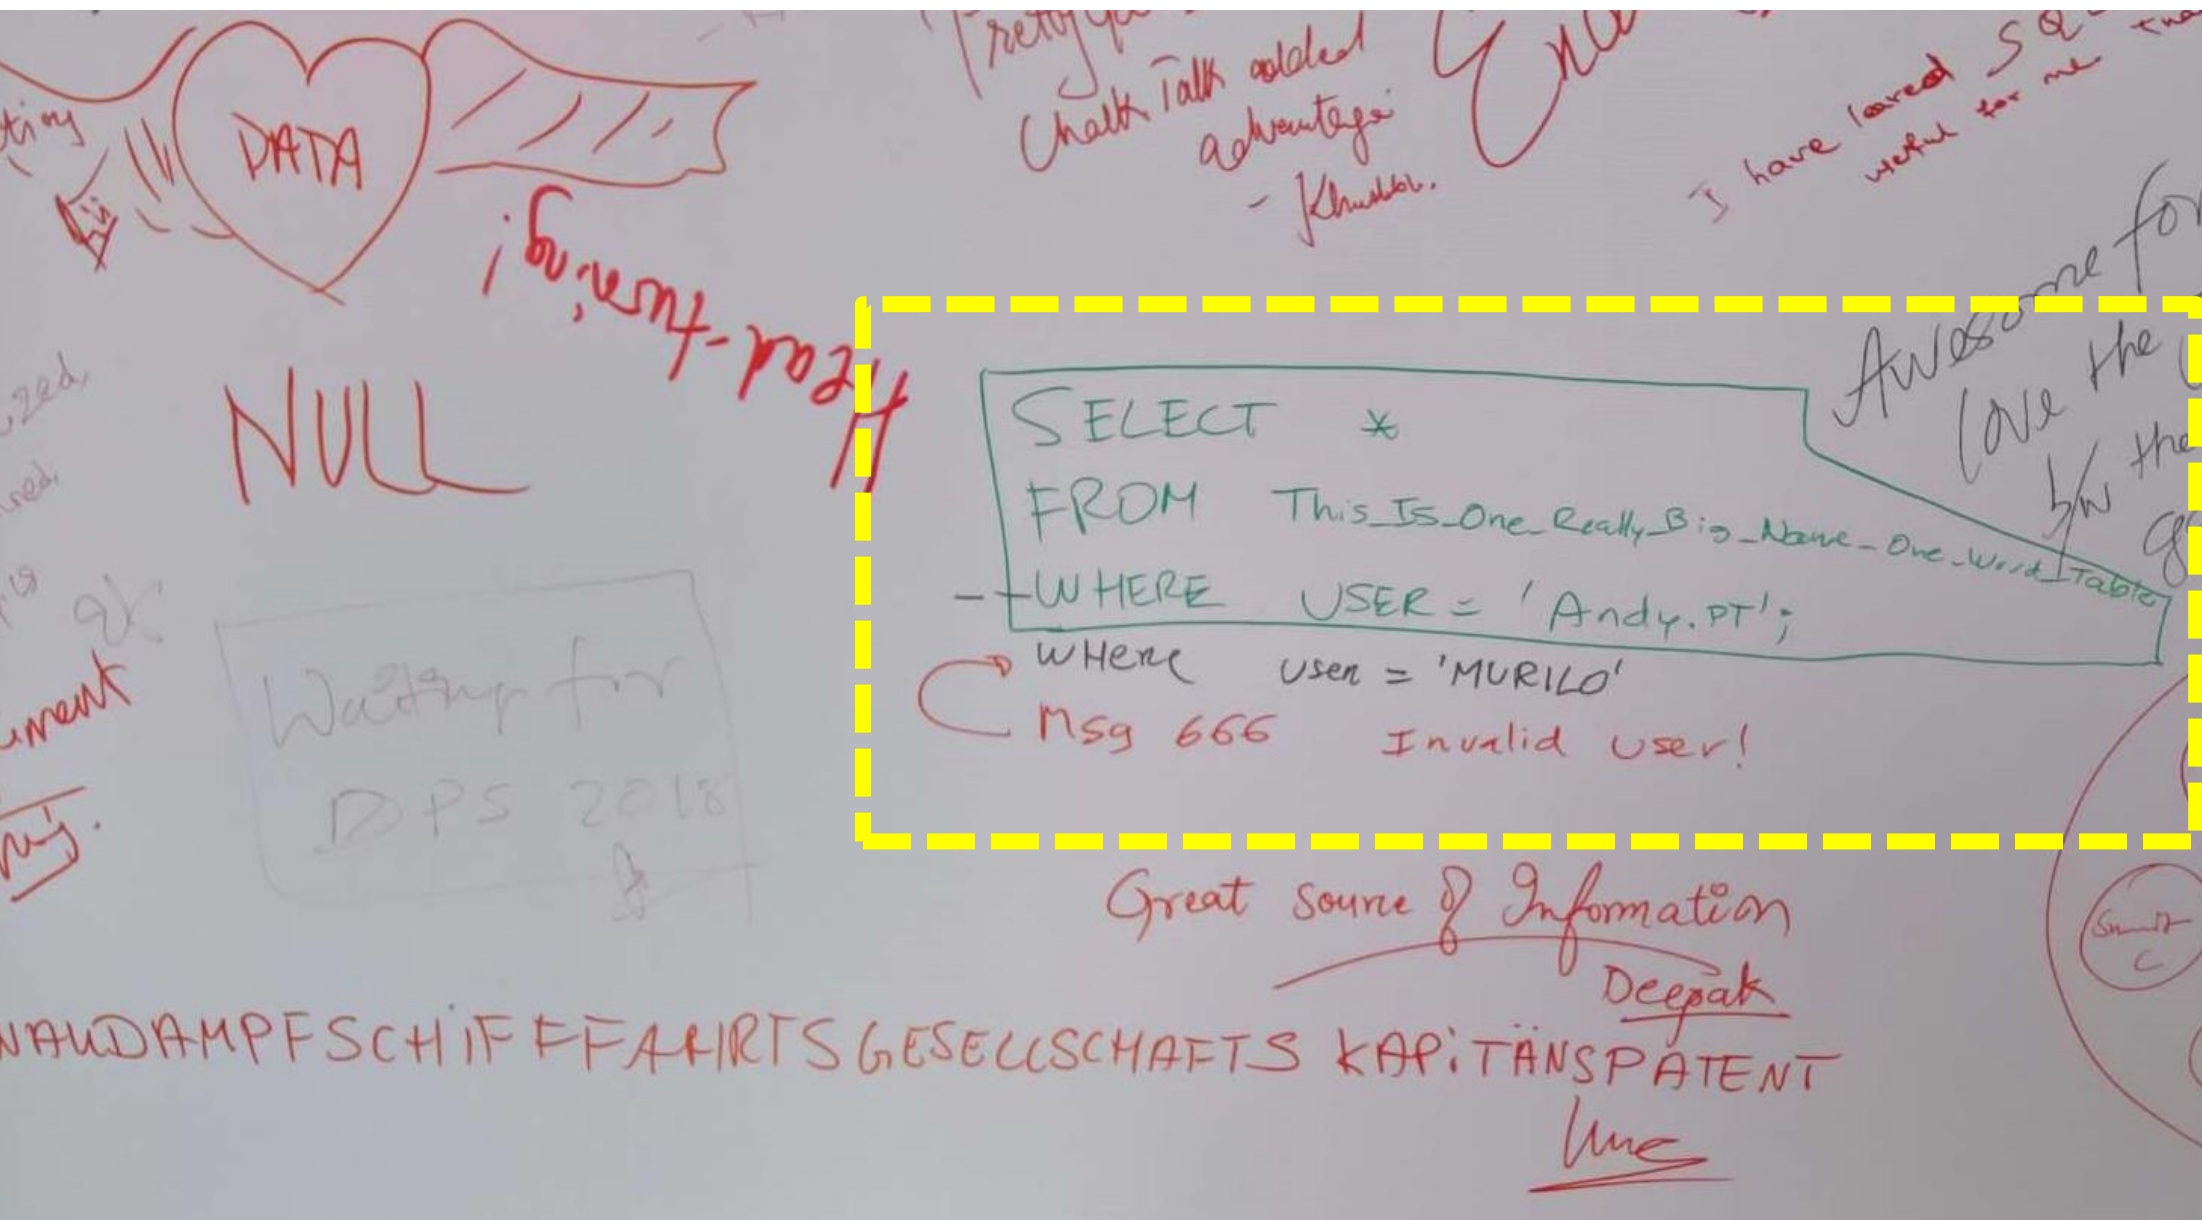 DATA
Chalk Talk added
advantage
I have leared SQ
useful for me
Head-turning!
NULL
Awesome for
Love the
b/w the
SELECT *
FROM This_Is_One_Really_Big_Name_One_Word_Table
--WHERE USER = 'Andy.PT';
WHere User = 'MURILO'
Msg 666 Invalid user!
Waiting for
DPS 2018
Great Source of Information
Deepak
NAUDAMPFSCHIFFFAHRTSGESELLSCHAFTS KAPiTÄNSPATENT